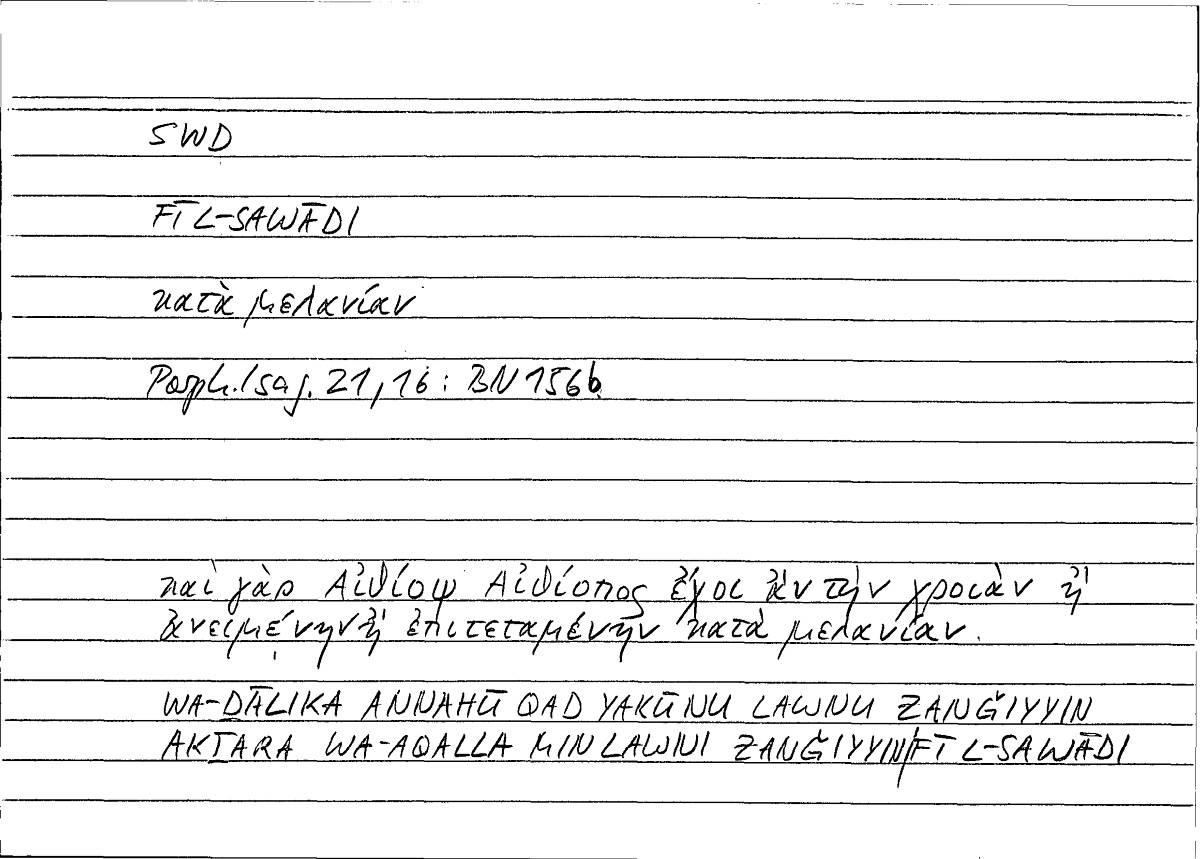 SWD
FĪ L-SAWĀDI
κατὰ μελανίαν
Porph. Isag. 21,16: BN 156b
καὶ γὰρ Αἰθίοψ Αἰθίοπος ἔχοι ἂν τὴν χροιὰν ἢ
ἀνειμένην ἢ ἐπιτεταμένην κατὰ μελανίαν.
WA-ḎĀLIKA ANNAHŪ QAD YAKŪNU LAWNU ZANǦIYYIN
AKṮARA WA-AQALLA MIN LAWNI ZANǦIYYIN/FĪ L-SAWĀDI